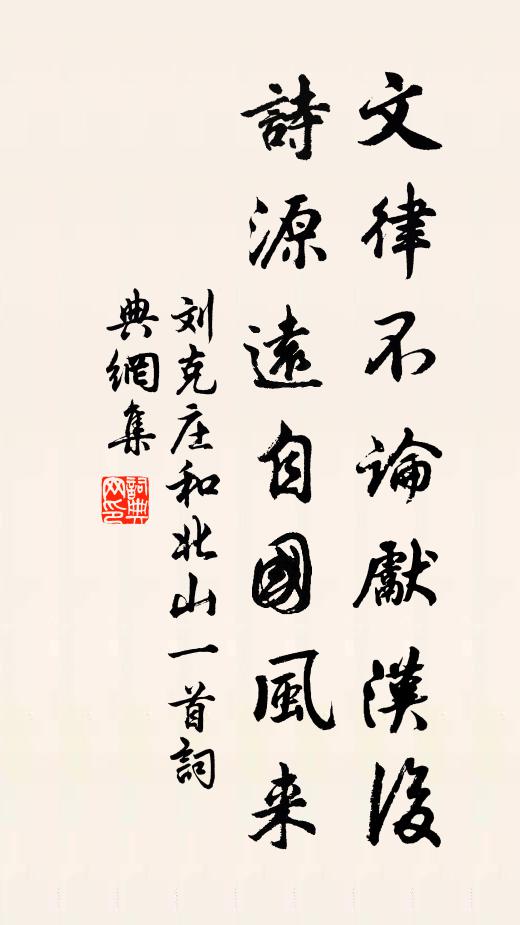 文律不論獻漢後
詩源遠自國風来
刘克庄和北山一首詞
典網集
詞典
网印